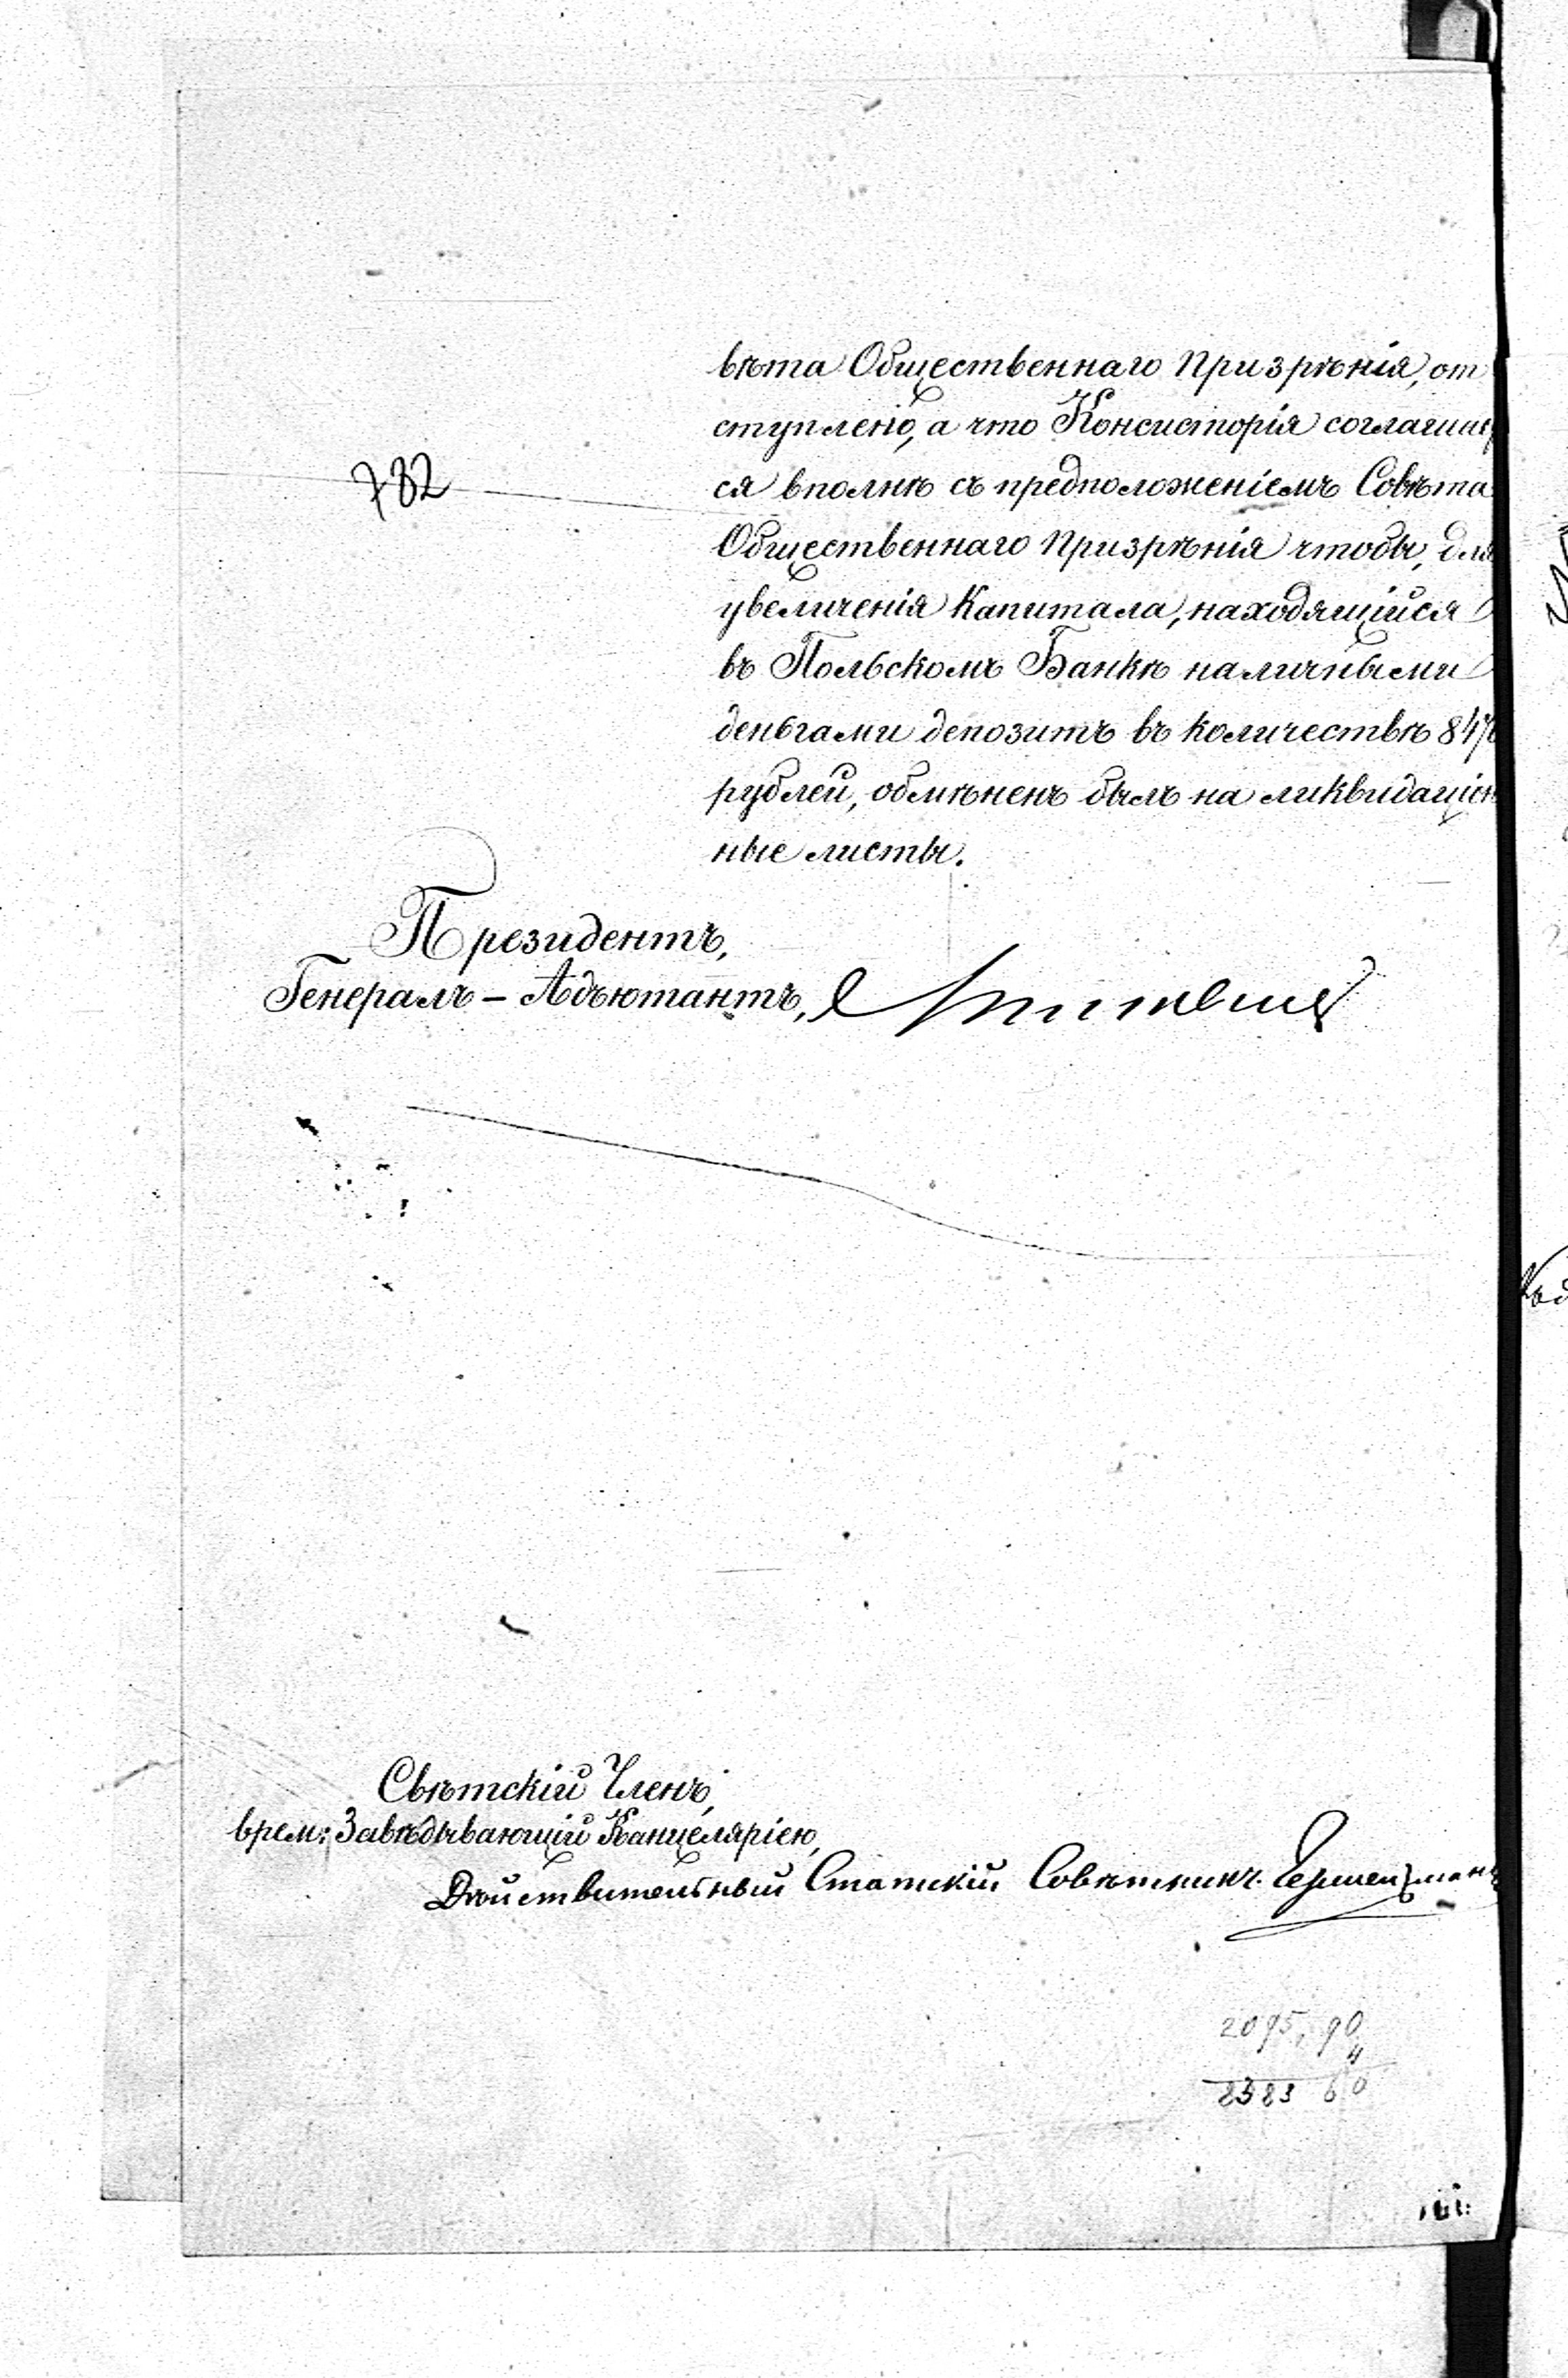 вѣта Общественнаго Призрѣнія, от
ступлено, а что Консисторія соглашает
ся вполнѣ съ предположеніемъ Совѣта
782
Общественнаго Призрѣнія чтобы, для
увеличенія Капитала, находящійся
въ Польскомъ Банкѣ наличными
деньгами депозитъ въ количествѣ
рублей, обмѣненъ былъ на ликвидаціон
ные листы.
Президентъ,
Генералъ-Адъютантъ,
Свѣтскій Членъ,
врем: Завѣдывающій Канцеляріею,
Дѣйствительный Статскій Совѣтникъ
2095,90
4
8383 60